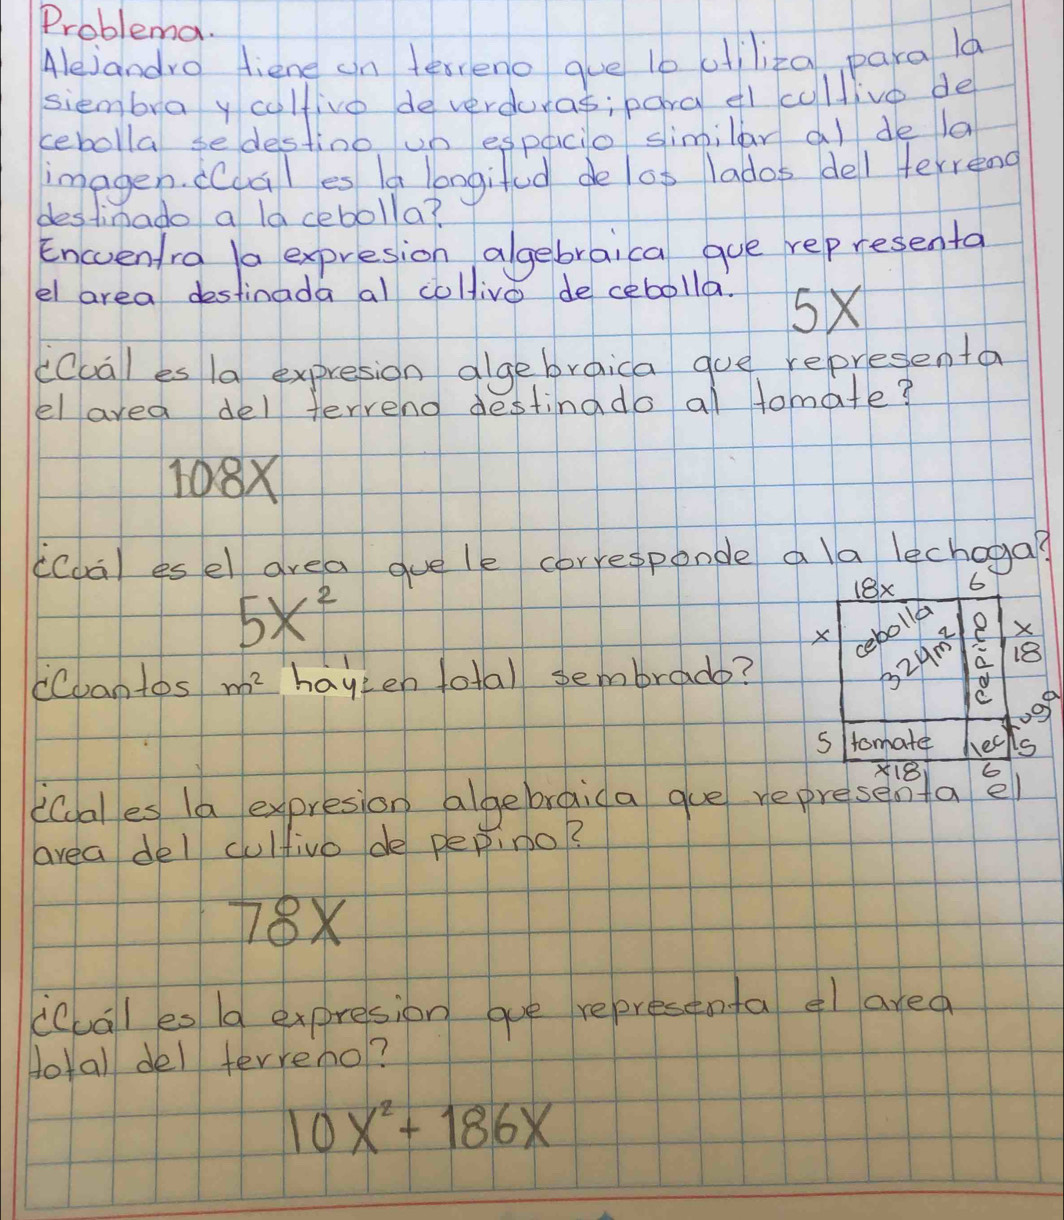 Problema.
Alejandro tiene un terreno que lo utiliza para la
siembra y cultivo de verduras; para el cultivo de
cebolla se destino un espacio similar al de la
imagen. ¿Cuál es la longitud de los lados del terreno
destinado a la cebolla?
Encuentra la expresion algebraica que representa
el area destinada al coltivo de cebolla.
5X
¿Cuál es la expresion algebraica que representa
el area del terreno destinado al tomate?
108X
¿Cuál es el area que le corresponde a la lechoga?
5X²
¿Cuantos m² hay en total sembrado?
18x 6
x cebolla 324m² pepino x 18
5 tomate lechuga 5
x18 6
¿Cual es la expresion algebraica que representa el
area del cultivo de pepino?
78X
¿Cuál es la expresion que representa el area
total del terreno?
10X² + 186X